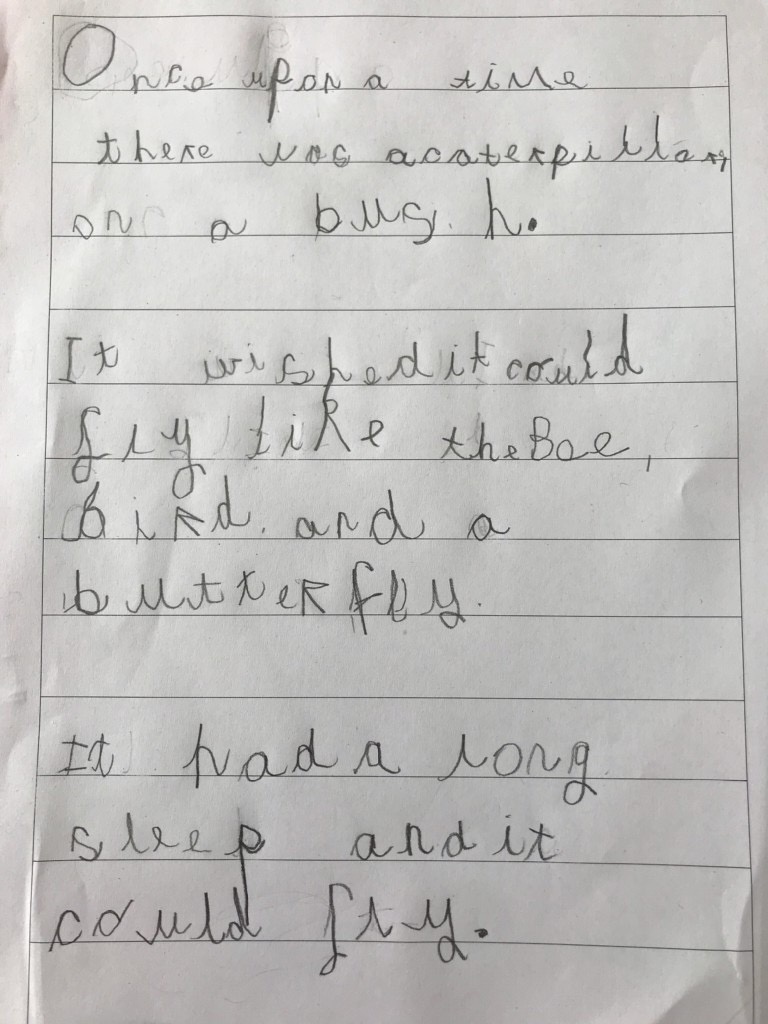 Once upon a time
there was a caterpillar,
on a bush.
It wished it could
fly like the Bee,
bird. and a
butterfly.
It had a long
sleep and it
could fly.